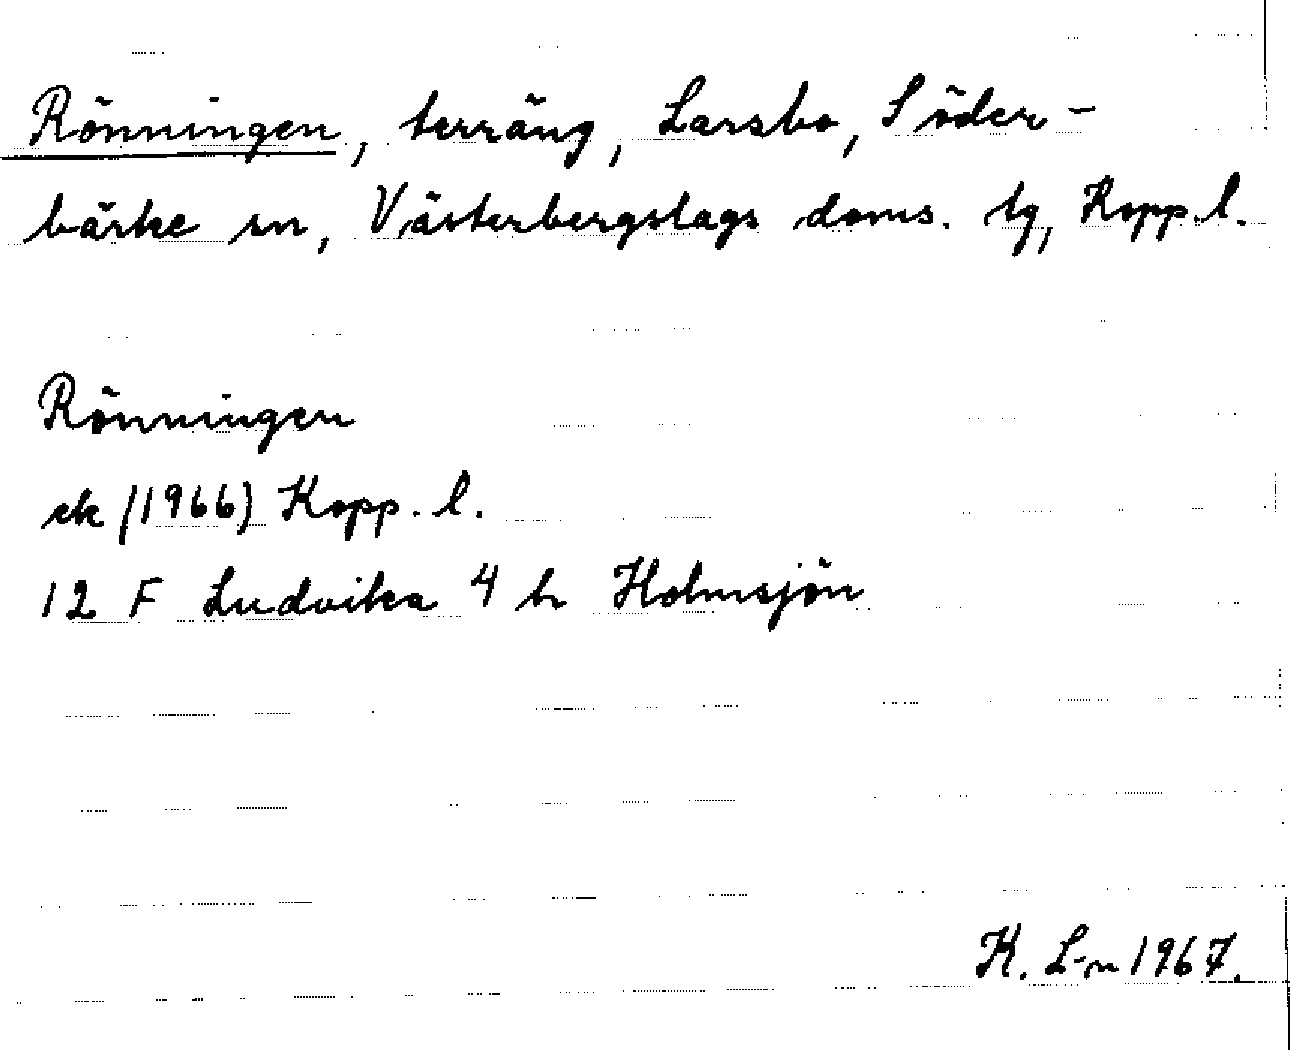 Rönningen, terräng, Larsbo, Söder-
bärke sn, Västerbergslags doms. tg, Kopp.l.
Rönningen
ek (1966) Kopp. l.
12 F Ludvika 4 h Holmsjön
K. L-n 1967.